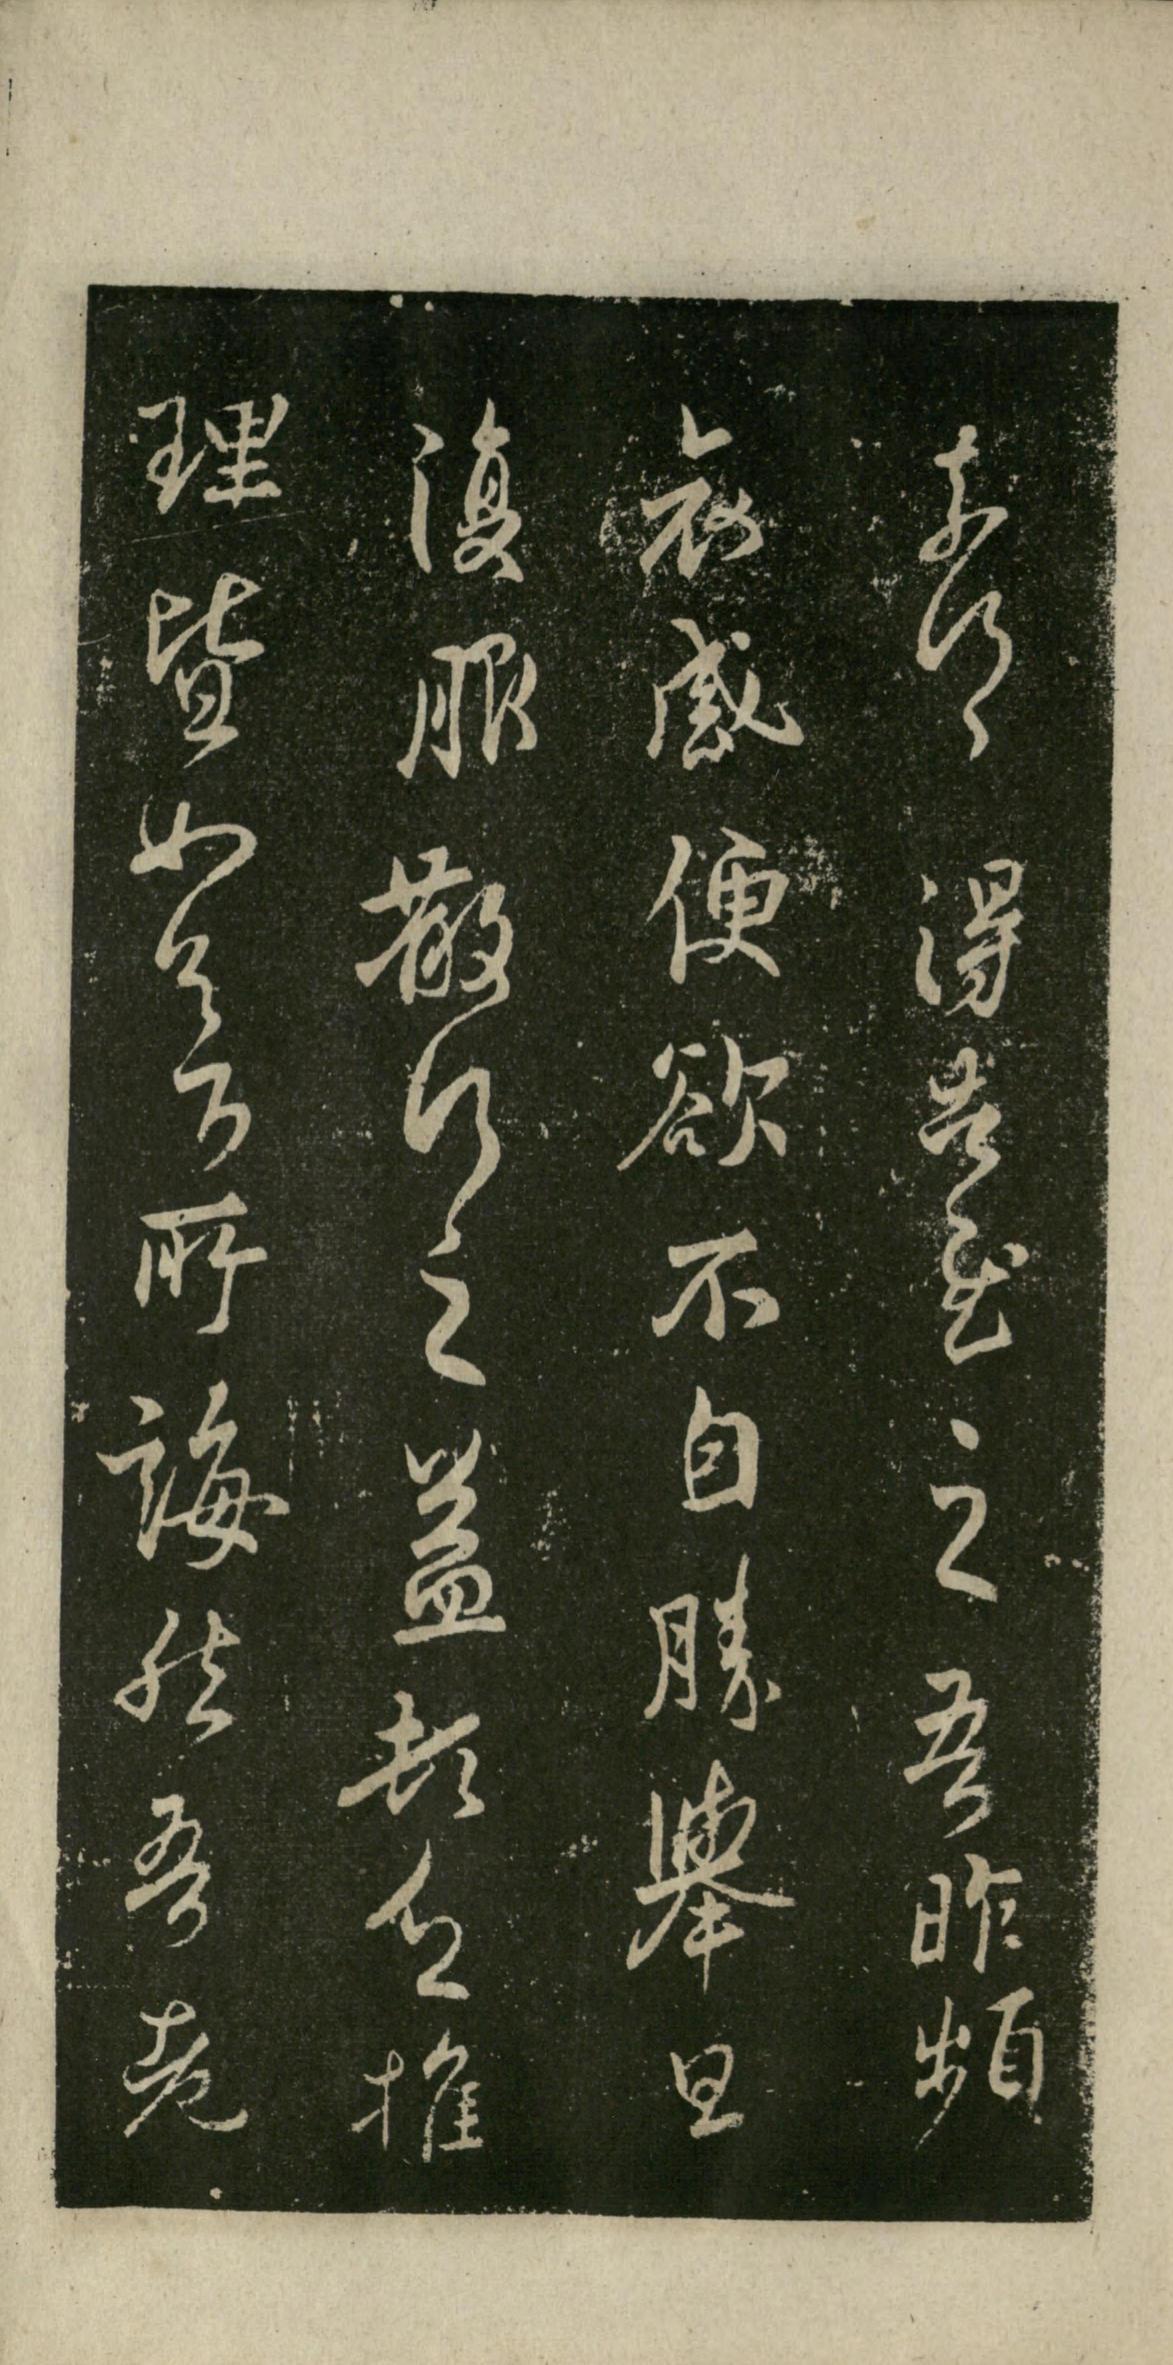 得告慰之吾昨頻
哀感便欲不自勝舉旦
復服散行之益頓乏推
理皆如足下所誨然吾老